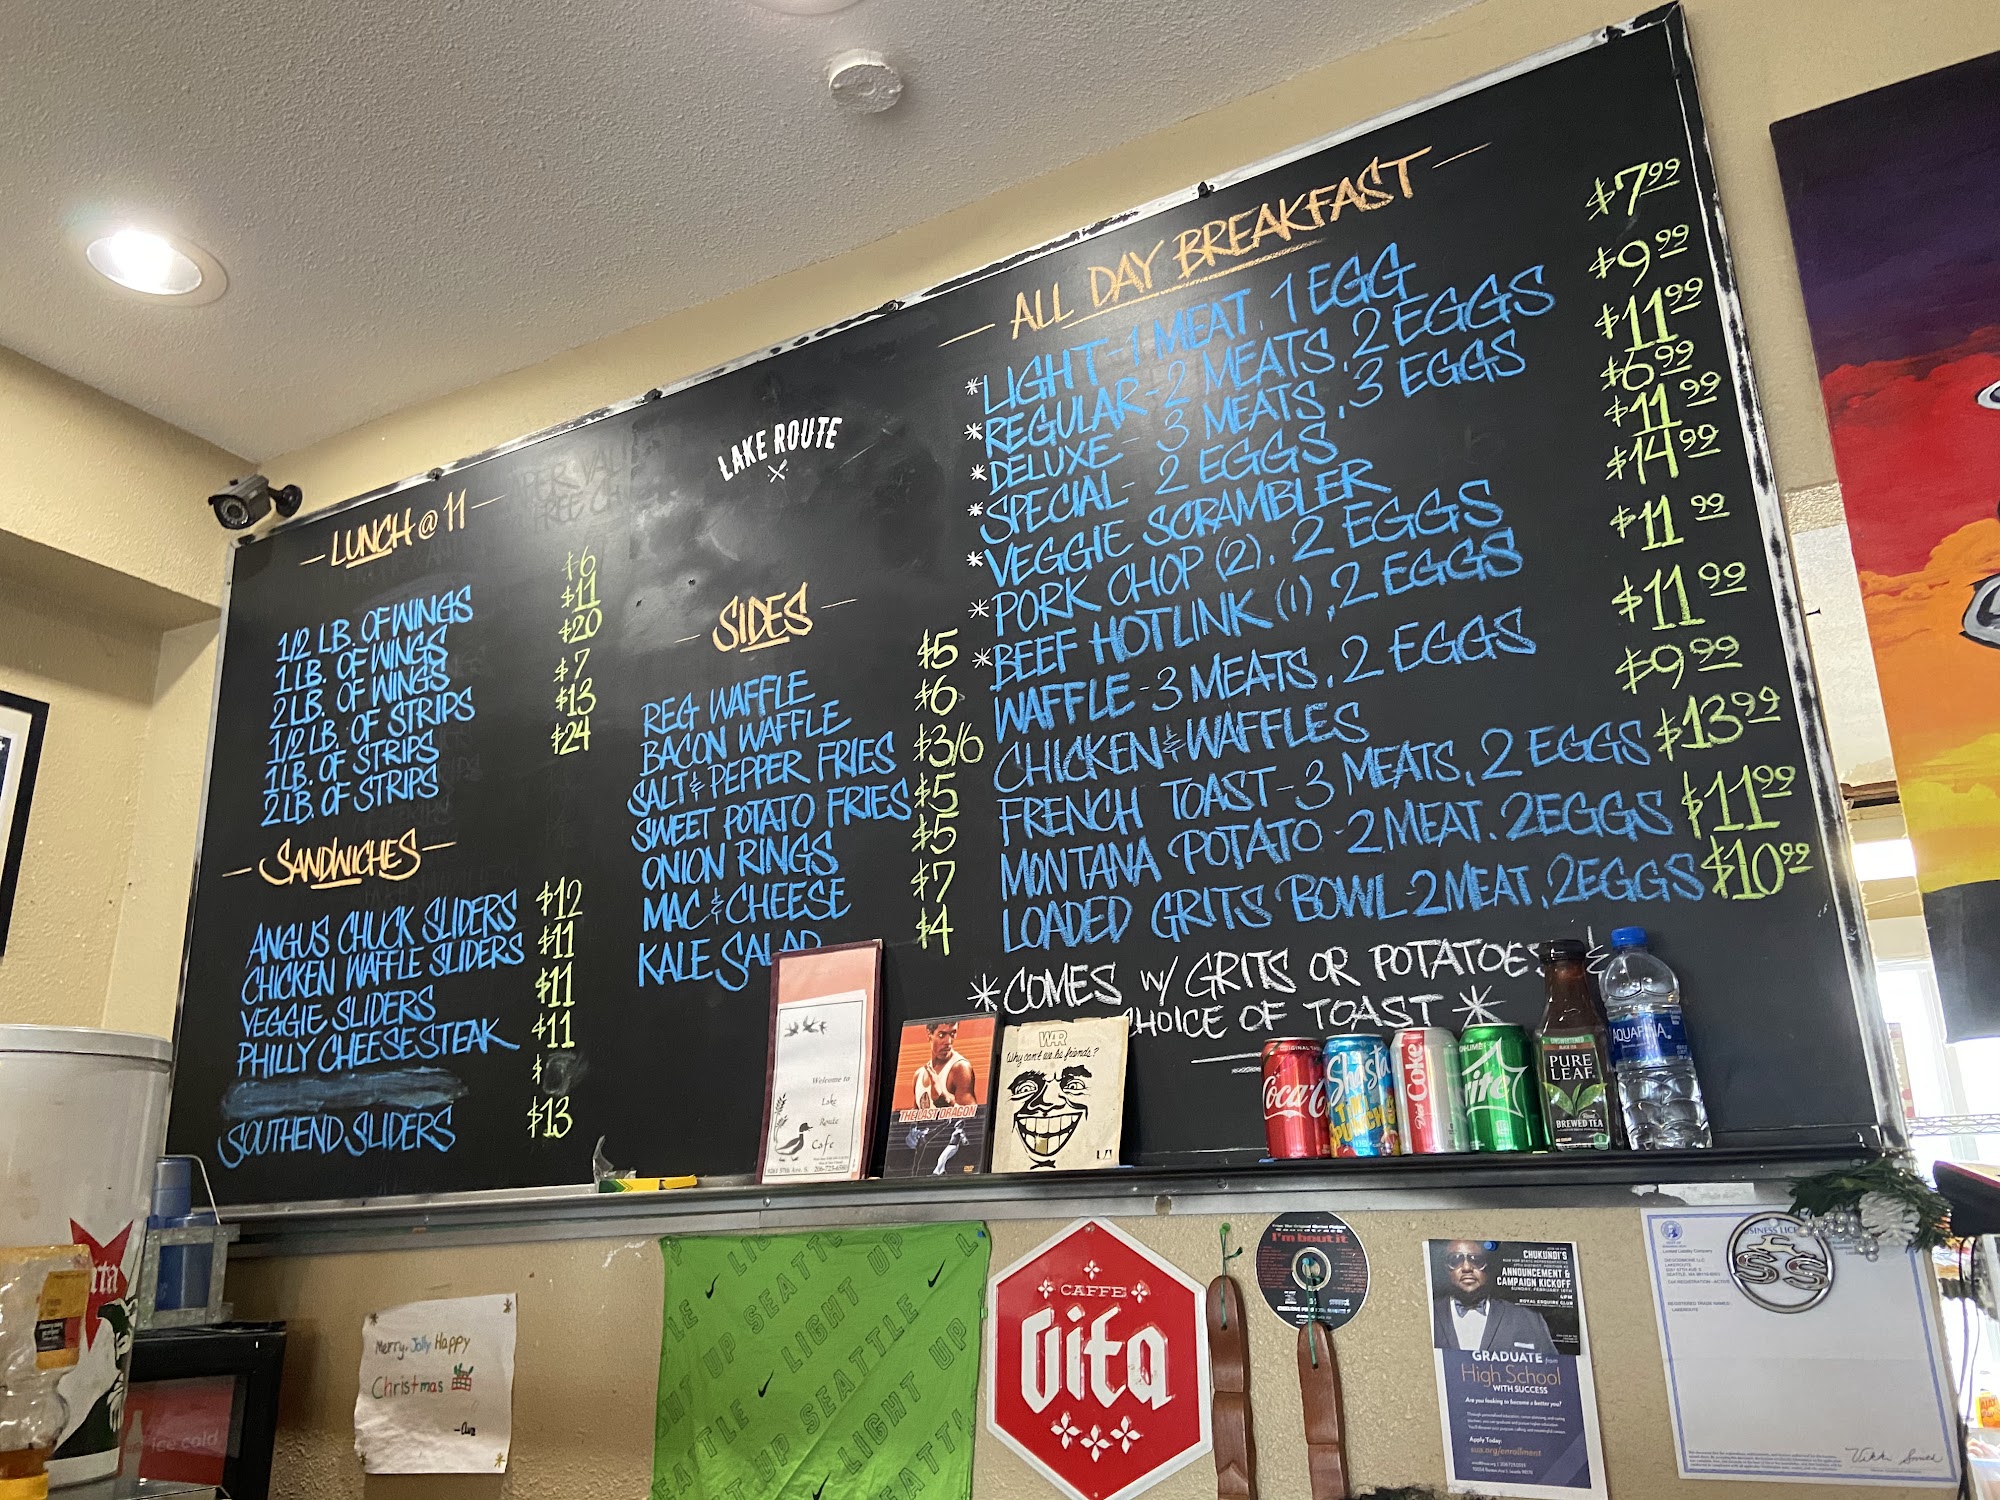 LAKE ROUTE
- LUNCH @ 11 -
1/2 LB. OF WINGS $6
1 LB. OF WINGS $11
2 LB. OF WINGS $20
1/2 LB. OF STRIPS $7
1 LB. OF STRIPS $13
2 LB. OF STRIPS $24
- SANDWICHES -
ANGUS CHUCK SLIDERS $12
CHICKEN WAFFLE SLIDERS $11
VEGGIE SLIDERS $11
PHILLY CHEESESTEAK $11
$
SOUTHEND SLIDERS $13
- SIDES -
REG WAFFLE $5
BACON WAFFLE $6
SALT & PEPPER FRIES $3/6
SWEET POTATO FRIES $5
ONION RINGS $5
MAC & CHEESE $7
KALE SALAD $4
- ALL DAY BREAKFAST -
*LIGHT - 1 MEAT, 1 EGG $7.99
*REGULAR - 2 MEATS, 2 EGGS $9.99
*DELUXE - 3 MEATS, 3 EGGS $11.99
*SPECIAL - 2 EGGS $6.99
*VEGGIE SCRAMBLER $11.99
*PORK CHOP (2), 2 EGGS $14.99
*BEEF HOTLINK (1), 2 EGGS $11.99
WAFFLE - 3 MEATS, 2 EGGS $11.99
CHICKEN & WAFFLES $9.99
FRENCH TOAST - 3 MEATS, 2 EGGS $13.99
MONTANA POTATO - 2 MEAT, 2 EGGS $11.99
LOADED GRITS BOWL - 2 MEAT, 2 EGGS $10.99
*COMES W/ GRITS OR POTATOES &
CHOICE OF TOAST *
Welcome to
Lake
Route
Cafe
THE LAST DRAGON
DVD
WAR
Why can't we be friends?
UA
Coca-C
Shasta
PUNCH
Diet Coke
rite
UNSWEETENED
PURE
LEAF
BREWED TEA
AQUAFINA
Merry, Jolly Happy
Christmas
ice cold
LIGHT UP SEATTLE
CAFFE
Vita
I'm bout it
CHUKUNDI'S
ANNOUNCEMENT &
CAMPAIGN KICKOFF
4PM
ROYAL ESQUIRE CLUB
GRADUATE from
High School
WITH SUCCESS
Are you looking to become a better you?
Apply Today:
sua.org/enrollment
SINESS LICE
SS
Vikki Smith